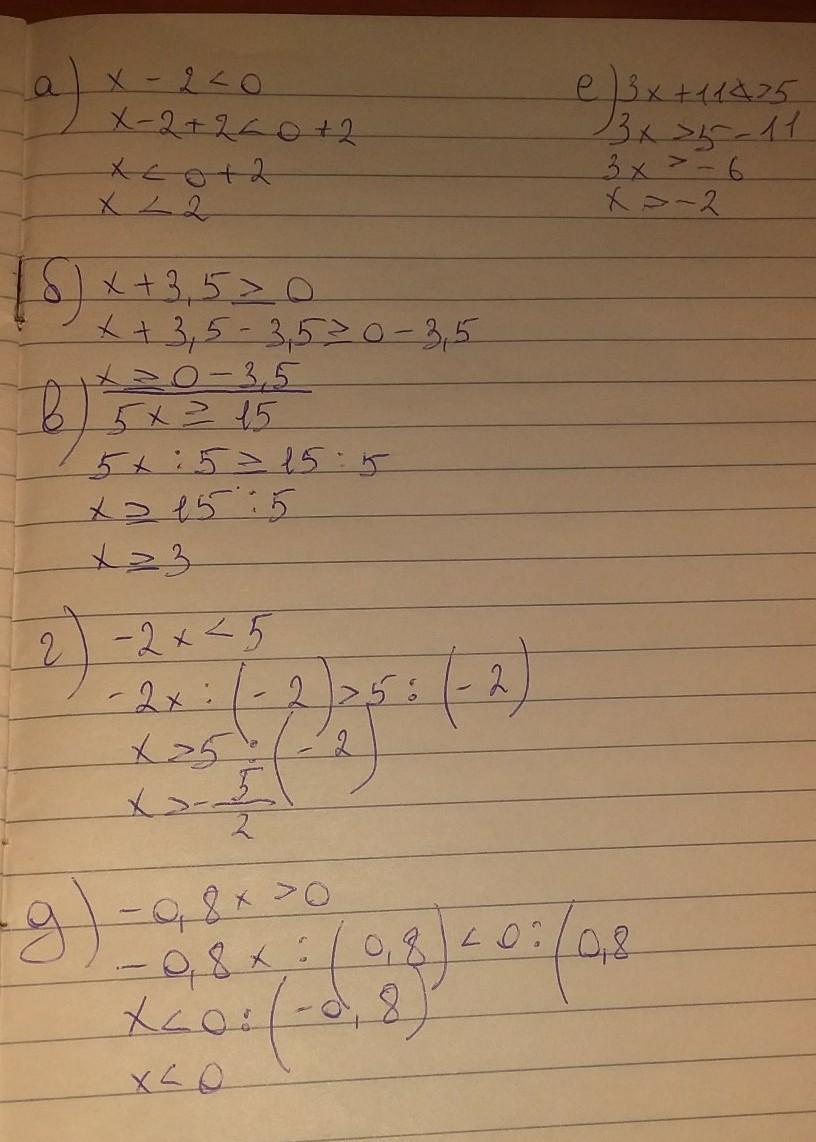 а) x - 2 < 0
x - 2 + 2 < 0 + 2
x < 0 + 2
x < 2
б) x + 3,5 ≥ 0
x + 3,5 - 3,5 ≥ 0 - 3,5
x ≥ 0 - 3,5
в) 5x ≥ 15
5x : 5 ≥ 15 : 5
x ≥ 15 : 5
x ≥ 3
г) -2x < 5
-2x : (-2) > 5 : (-2)
x > 5 : (-2)
x > -5/2
д) -0,8x > 0
-0,8x : (0,8) < 0 : (0,8
x < 0 : (-0,8)
x < 0
е) 3x + 11 > 5
3x > 5 - 11
3x > -6
x > -2